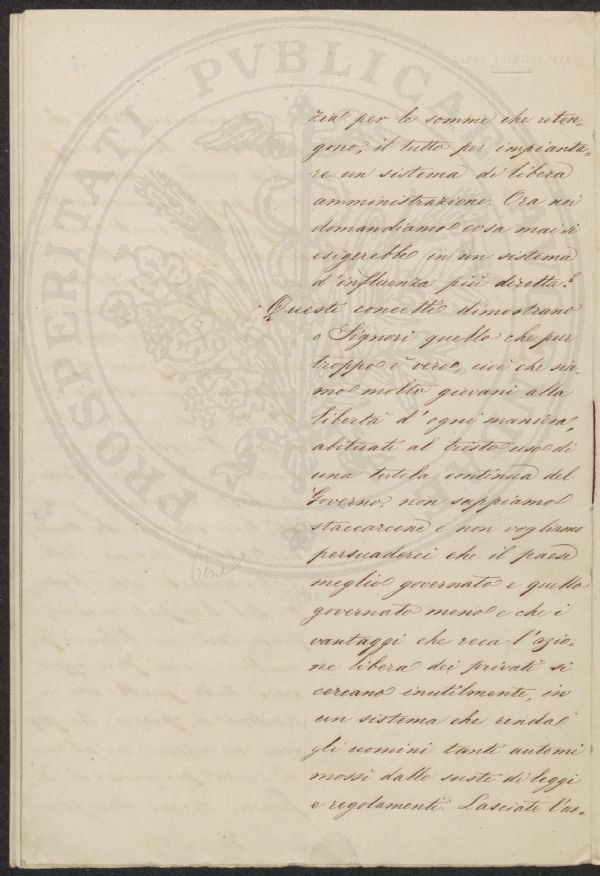 PROSPERITATI PVBLICAE
zia per le somme che riten=
gono; il tutto per impianta=
re un sistema di libera
amministrazione. Ora noi
domandiamo cosa mai si
esigerebbe in un sistema
d'influenza più diretta?
Questi concetti dimostrano
o Signori quello che pur
troppo è vero, cioè che sia=
mo molto giovani alla
libertà d'ogni maniera,
abituati al tristo uso di
una tutela continua del
Governo, non sappiamo
staccarcene e non vogliamo
persuaderci che il paese
meglio governato e quello
governato meno e che i
vantaggi che reca l'azio=
ne libera dei privati si
cercano inutilmente, in
un sistema che renda
gli uomini tanti automi
mossi dalle suste di leggi
e regolamenti. Lasciate l'as=
bene